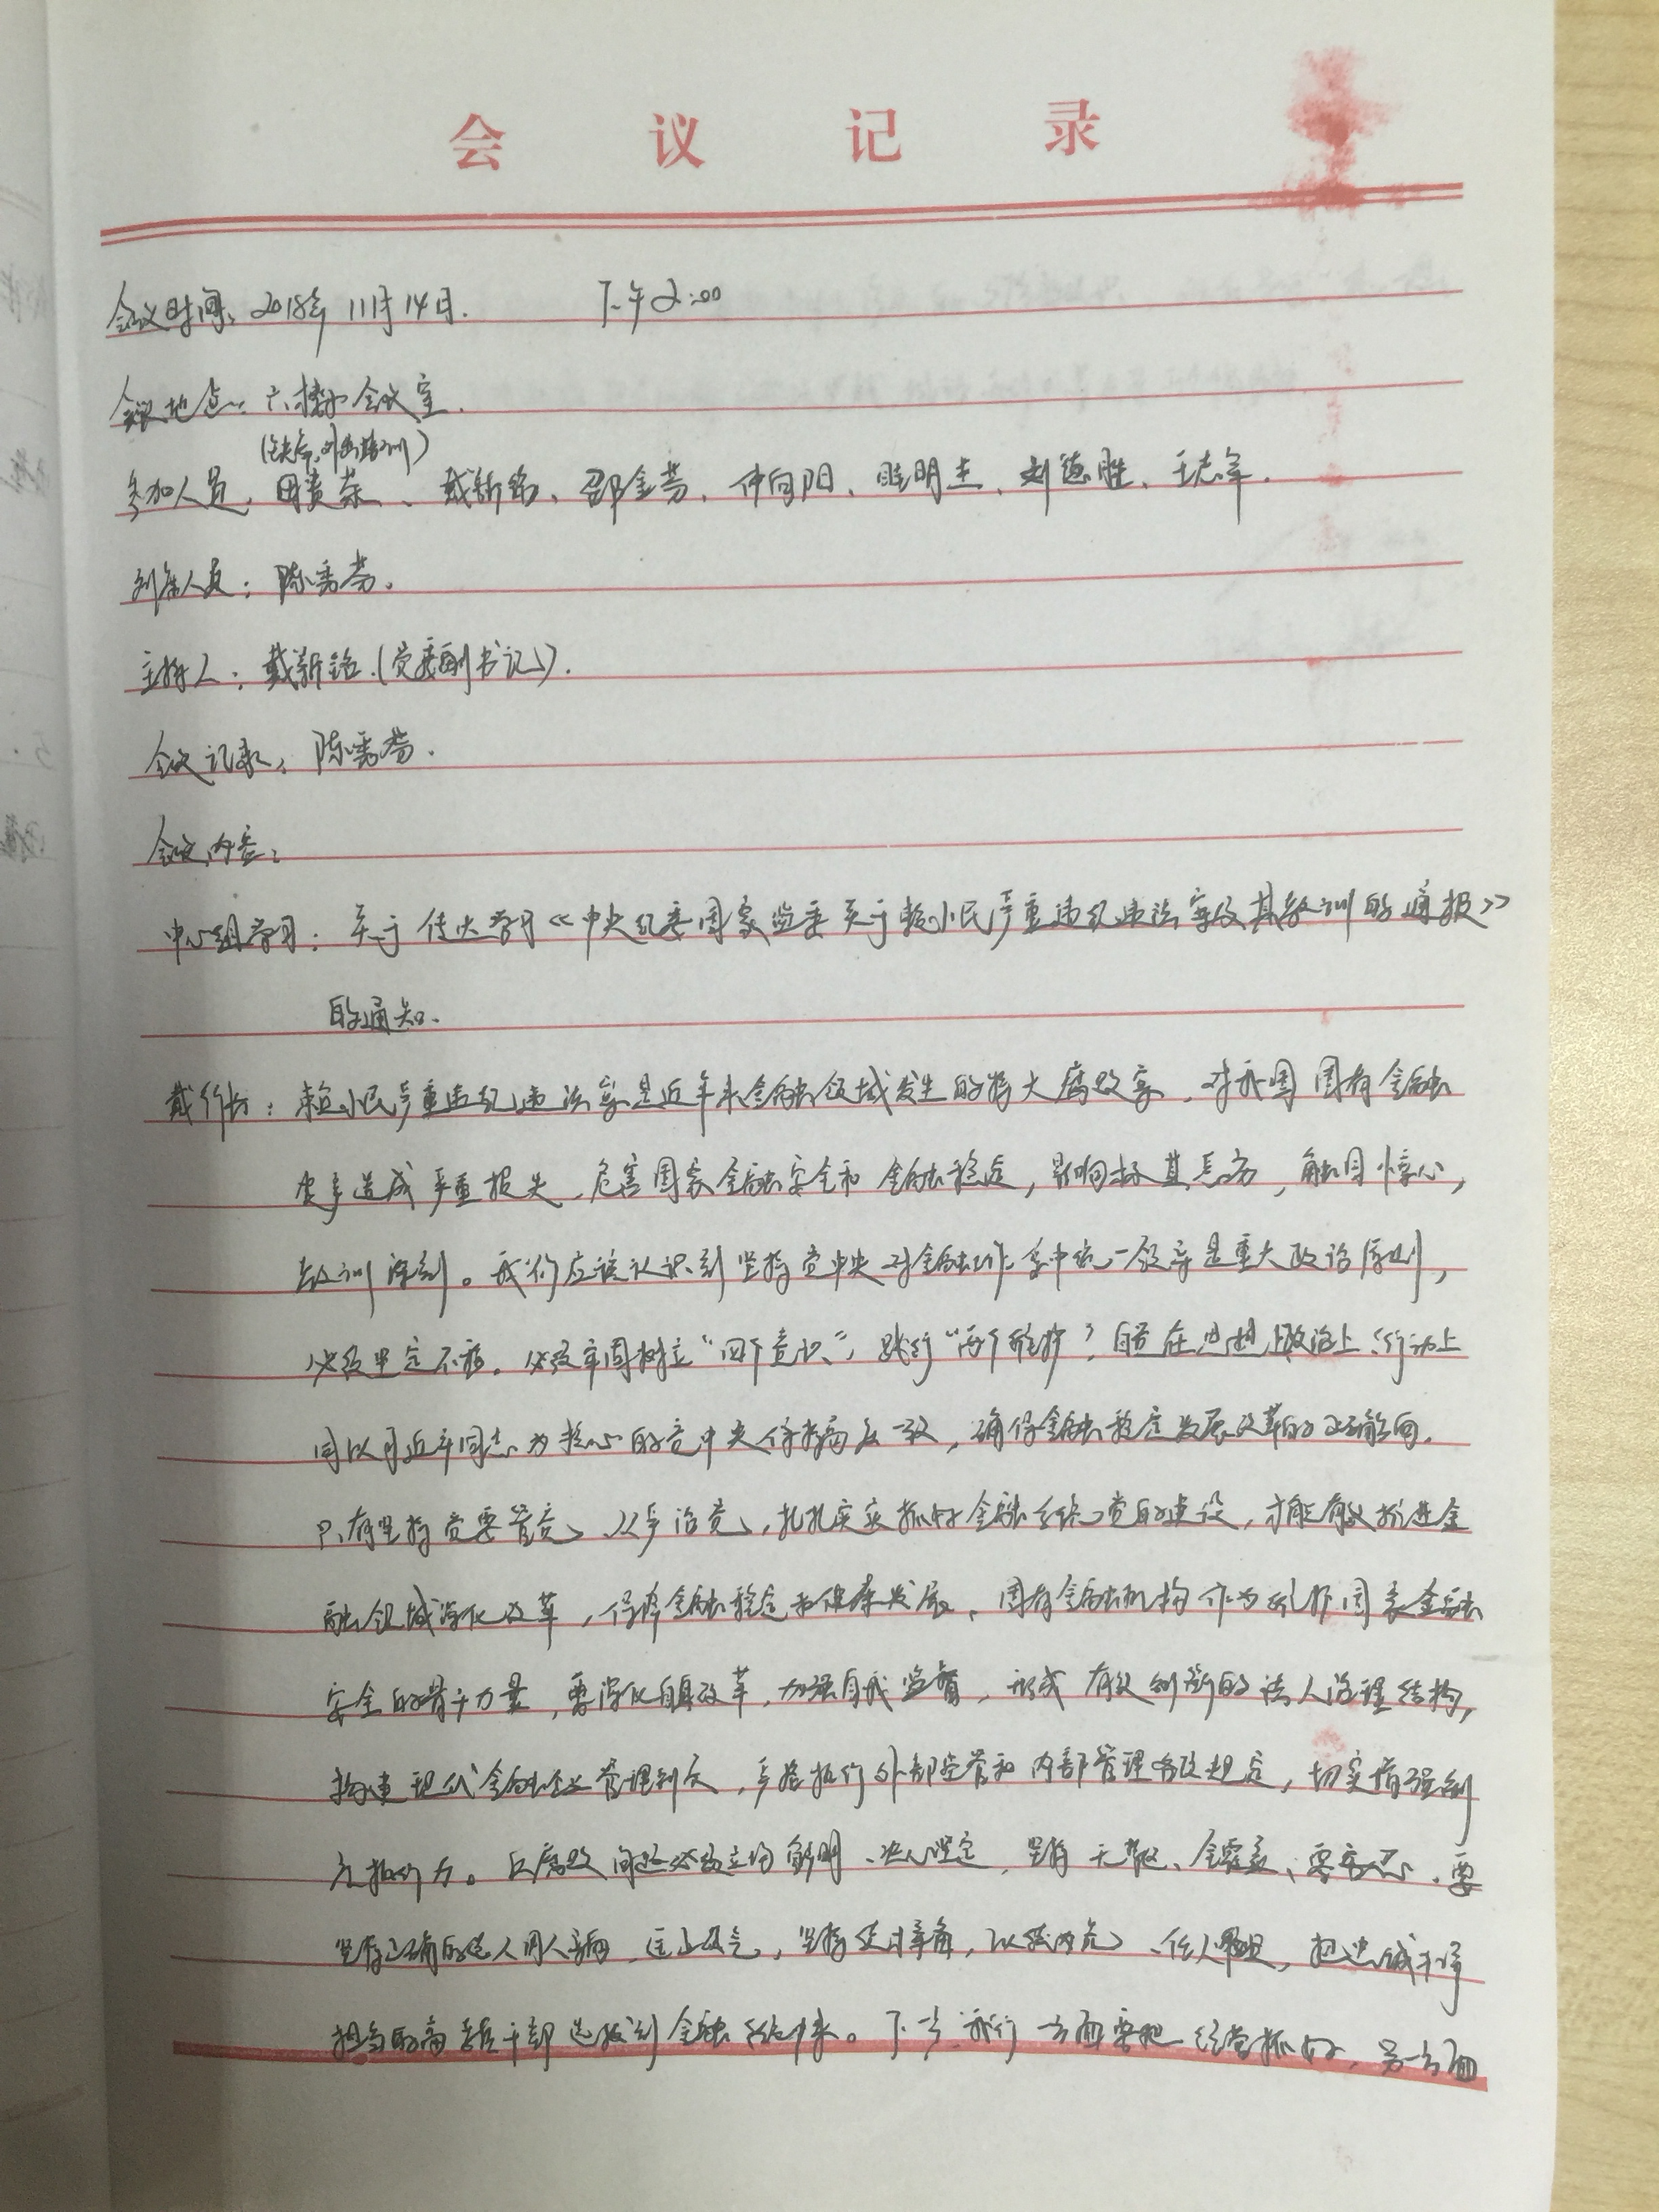 会议记录
会议时间：2018年11月14日. 下午2:00
会议地点：六楼小会议室.
(缺席,外出培训)
参加人员：田贵荣、戴新铭、邵金芳、仲向阳、眭明杰、刘德胜、王志军.
列席人员：陈秀芳.
主持人：戴新铭.(党委副书记).
会议记录：陈秀芳.
会议内容：
中心组学习：关于传达学习《中央纪委国家监委关于赖小民严重违纪违法案及其教训的通报》
的通知.
戴行长：赖小民严重违纪违法案是近年来金融领域发生的特大腐败案，对我国国有金融
资产造成严重损失，危害国家金融安全和金融稳定，影响极其恶劣，触目惊心，
教训深刻。我们应该认识到坚持党中央对金融工作集中统一领导是重大政治原则，
必须坚定不移。必须牢固树立“四个意识”，践行“两个维护”，自觉在思想上政治上行动上
同以习近平同志为核心的党中央保持高度一致，确保金融稳定发展改革的正确方向.
只有坚持党要管党、从严治党，扎扎实实抓好金融系统党的建设，才能有效推进金
融领域深化改革，保障金融稳定和健康发展。国有金融机构作为维护国家金融
安全的骨干力量，要深化自身改革，加强自我监督，形成有效制衡的法人治理结构，
构建现代金融企业管理制度，严格执行外部监管和内部管理各项规定，切实增强制
度执行力。反腐败问题必须立场鲜明、决心坚定，坚持无禁区、全覆盖、零容忍.要
坚持正确的选人用人导向，匡正风气，坚持德才兼备，以德为先、任人唯贤，把忠诚干净
担当的高素质干部选拔到金融系统中来。下步，我行一方面要把经营抓好，另一方面